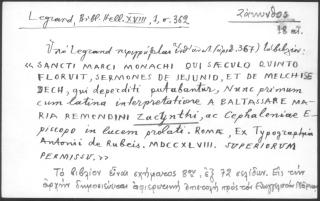 Legrand, Bibl. Hell. XVIII, 1, σ. 362
Ζάκυνθος
18 αἰ.
Ὑπὸ Legrand περιγράφεται (ἀριθ. 367) βιβλίον:
« SANCTI MARCI MONACHI QUI SAECULO QUINTO
FLORUIT, SERMONES DE JEJUNIO, ET DE MELCHISE
DECH, qui deperditi putabantur, Nunc primum
cum latina interpretatione A BALTASSARE MA
RIA REMONDINI Zacynthi, ac Cephaloniae E-
piscopo in lucem prolati. Romae, Ex Typographia
Antonii de Rubeis. MDCCXLVIII. SUPERIORUM
PERMISSU. »
Τὸ βιβλίον εἶναι σχήματος 8ον, ἐξ 72 σελίδων. Εἰς τὴν
ἀρχὴν δημοσιεύεται ἀφιερωτικὴ ἐπιστολὴ πρὸς τὸν